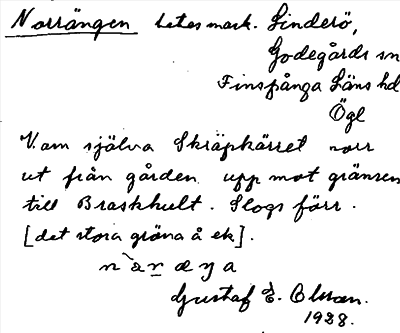 Norrängen betesmark. Linderö,
Godegårds sn
Finspånga Läns hd
Ögl
V. om själva Skräpkärret norr
ut från gården upp mot gränsen
till Braskhult. Slogs förr.
[det stora gröna å ek].
Gustaf E. Olsson.
1928.